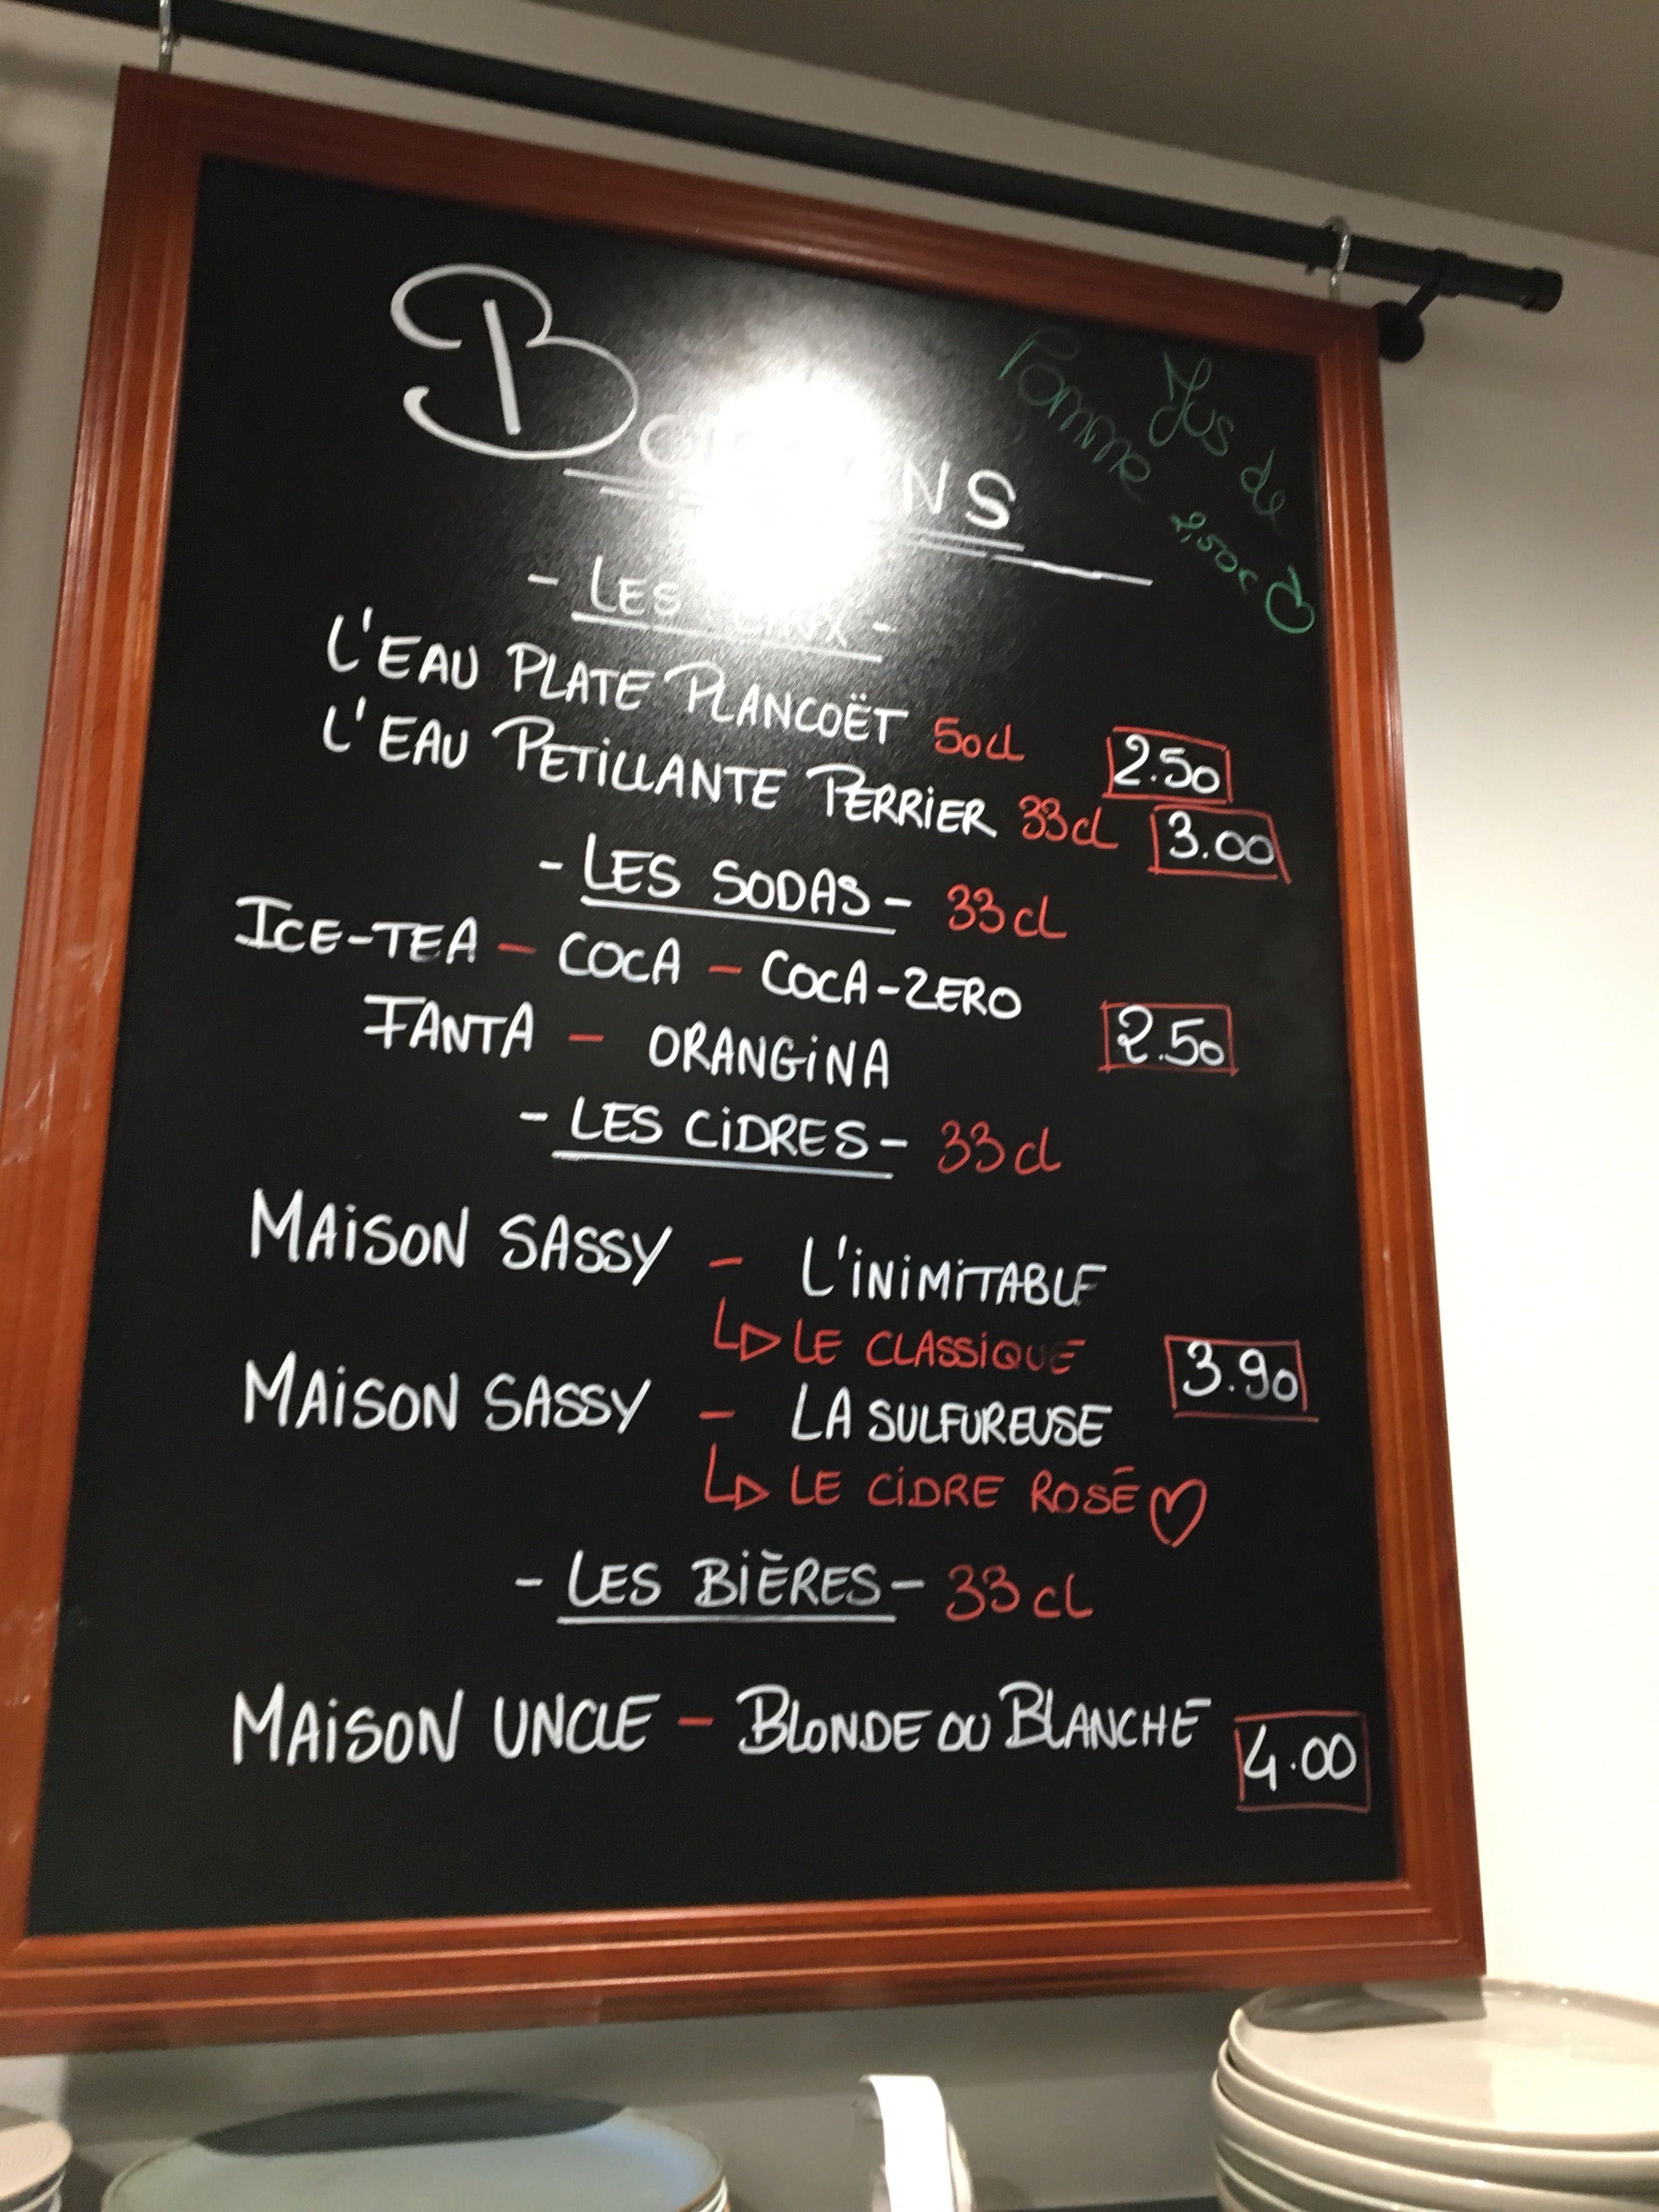 BOISSONS
Jus de
Pomme
2,50€
- LES EAUX -
L'EAU PLATE PLANCOËT 50cl 2.50
L'EAU PETiLLANTE PERRiER 33cl 3.00
- LES SODAS - 33cl
ICE-TEA - COCA - COCA-ZERO
FANTA - ORANGiNA 2.50
- LES CiDRES - 33cl
MAiSON SASSY - L'iNiMiTABLE
LE CLASSiQUE 3.90
MAiSON SASSY - LA SULFUREUSE
LE CiDRE ROSÉ
- LES BiÈRES - 33cl
MAiSON UNCLE - BLONDE OU BLANCHE 4.00